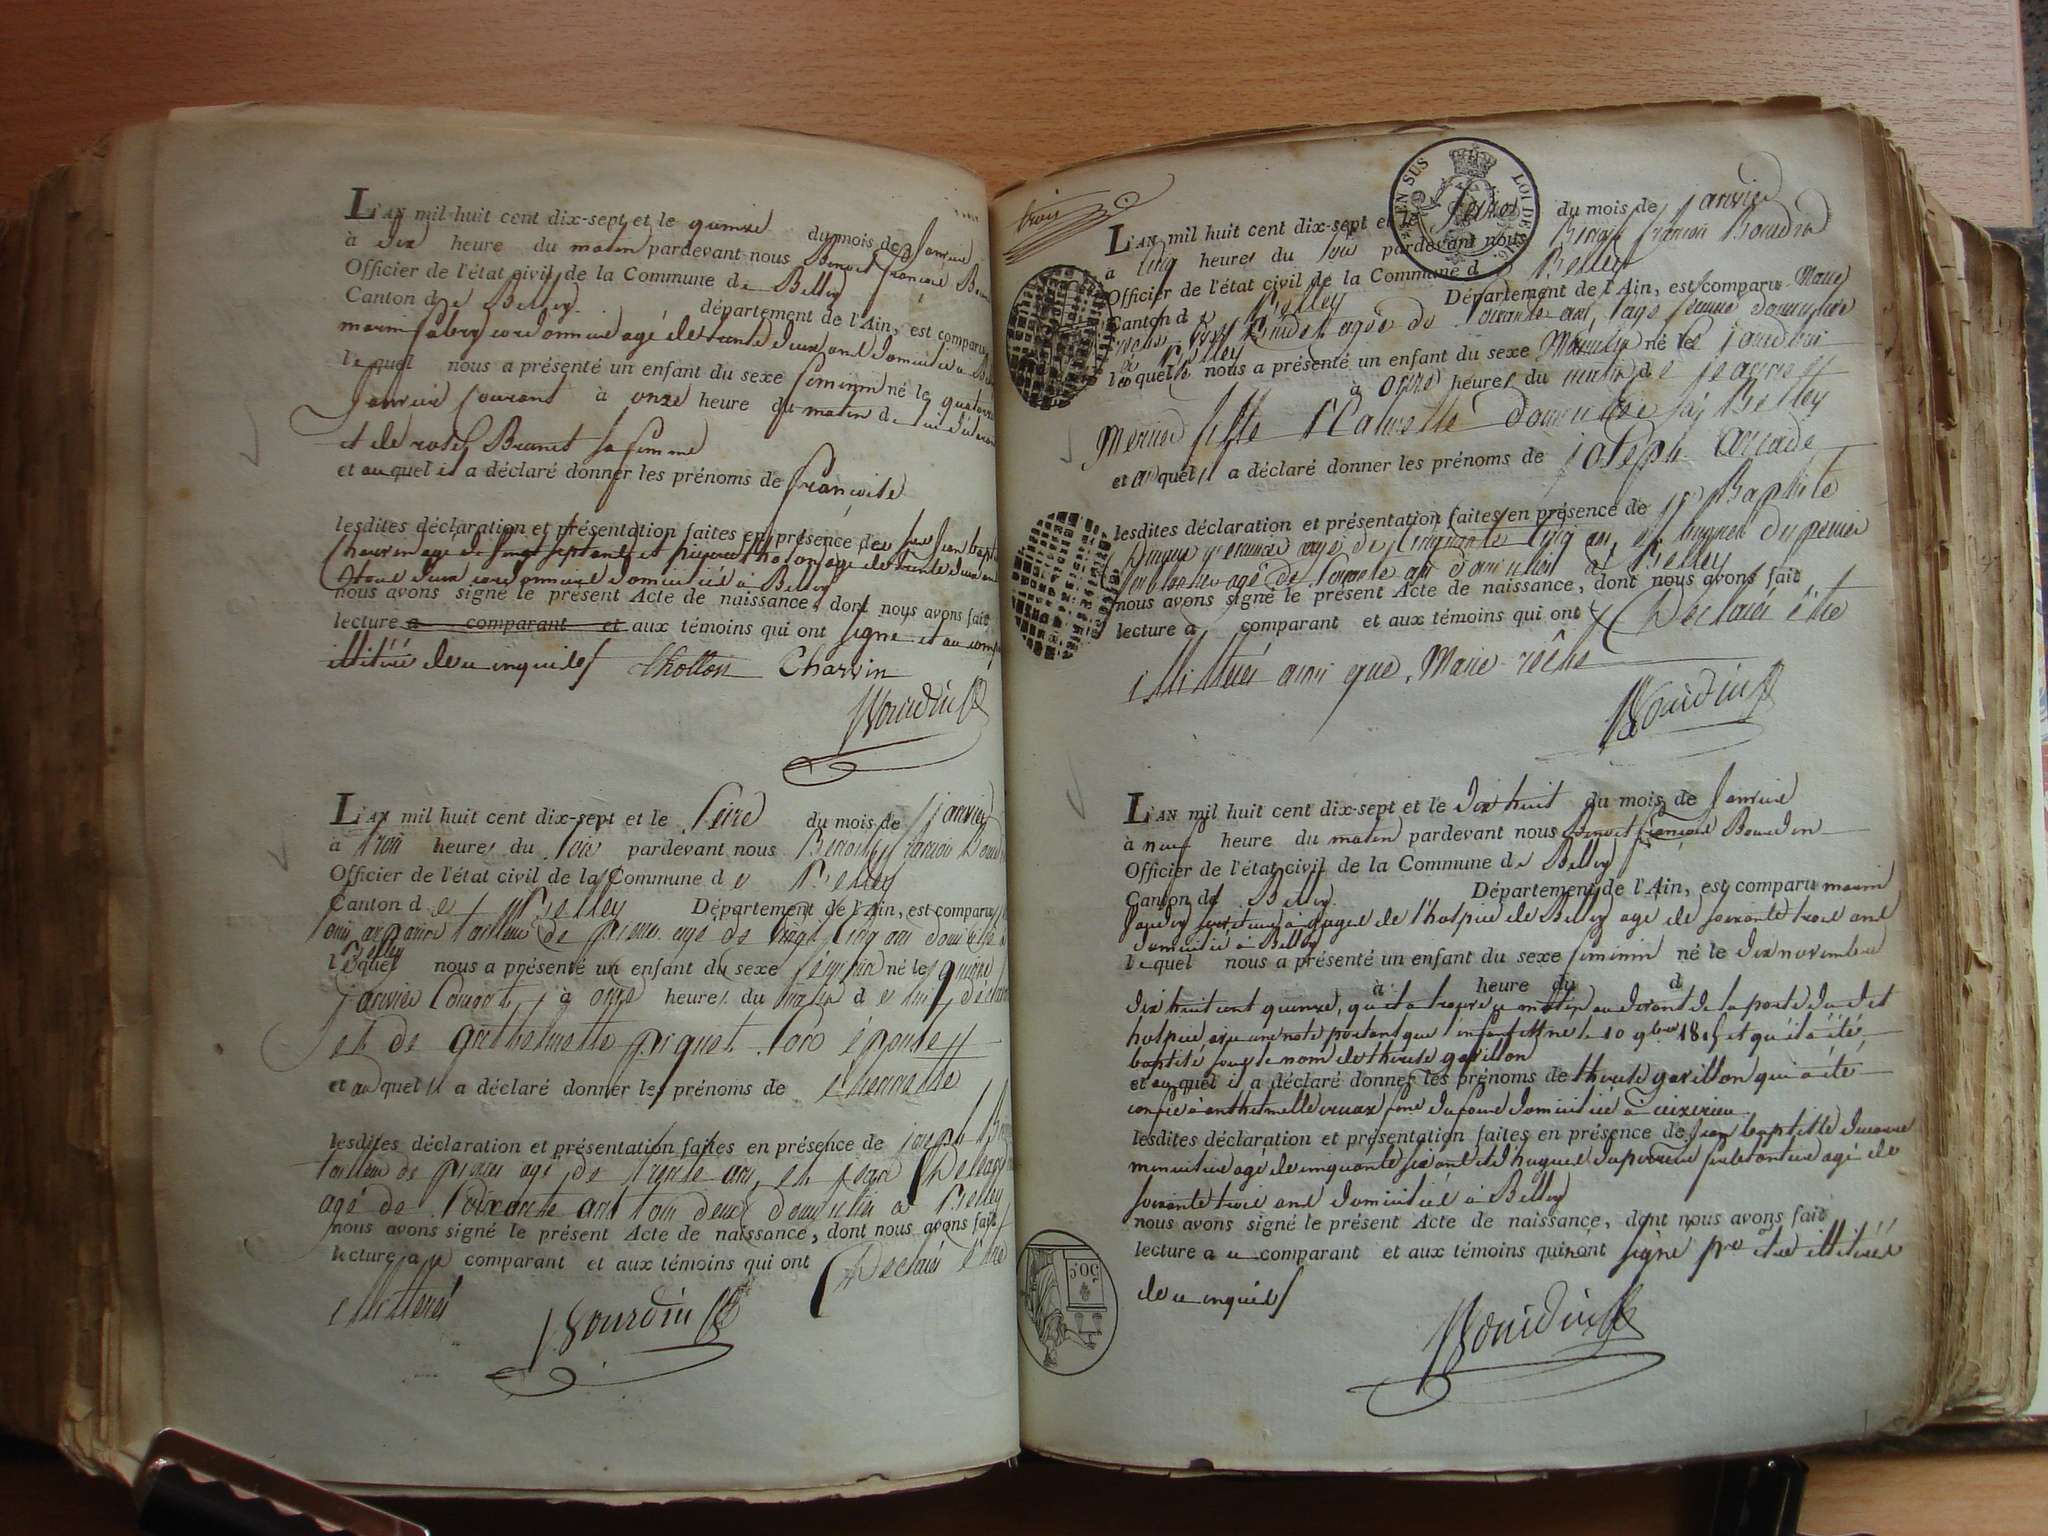 L'AN mil huit cent dix-sept et le quinze du mois de Janvier
à dix heure du matin pardevant nous Benoit françois
Officier de l'état civil de la Commune de Belley
Canton de Belley département de l'Ain, est comparu
marin cordonnier agé de trente deux ans domicilié à
lequel nous a présenté un enfant du sexe feminin né le quatorze
Janvier courant à onze heure du matin de lui déclarant
et de Brunet sa femme
et auquel il a déclaré donner les prénoms de françoise
lesdites déclaration et présentation faites en présence de Jean
Charvin agé de vingt sept ans et pierre thollon agé de trente deux ans
tous deux cordonniers domicilié à Belley
nous avons signé le présent Acte de naissance, dont nous avons fait
lecture a comparant et aux témoins qui ont signé et au
illitéré de ce enquis
thollon Charvin
Bourdin
L'AN mil huit cent dix-sept et le seize du mois de janvier
à trois heures du soir pardevant nous Benoit françois
Officier de l'état civil de la Commune de Belley
Canton de Belley Département de l'Ain, est comparu
tailleur de pierre agé de vingt cinq ans domicilié à
Belley
lequel nous a présenté un enfant du sexe féminin né le quinze
janvier courant à onze heures du matin de lui déclarant
et de Anthelmette piquet son épouse
et auquel il a déclaré donner les prénoms de etiennette
lesdites déclaration et présentation faites en présence de joseph
tailleur de pierre agé de trente ans, et jean
agé de soixante ans tous deux domiciliés à Belley
nous avons signé le présent Acte de naissance, dont nous avons fait
lecture au comparant et aux témoins qui ont Déclaré être
illitterés
Bourdin
trois
EN SUS LOI DE
L'AN mil huit cent dix-sept et le seize du mois de janvier
à cinq heures du soir pardevant nous Benoit françois Bourdin
Officier de l'état civil de la Commune de Belley
Canton de Belley Département de l'Ain, est comparu Marie
agée de soixante ans, sage femme domiciliée
à Belley
laquelle nous a présenté un enfant du sexe Masculin né le jourdhui
à onze heures du matin de jeanne
Mercier fille Naturelle domiciliée à Belley
et auquel il a déclaré donner les prénoms de joseph arcade
lesdites déclaration et présentation faites en présence de jn Baptiste
agé de cinquante cinq ans et hugues du perrier
agé de soixante ans domiciliés à Belley
nous avons signé le présent Acte de naissance, dont nous avons fait
lecture à comparant et aux témoins qui ont Déclaré être
illitterés ainsi que Marie
Bourdin
L'AN mil huit cent dix-sept et le dix huit du mois de Janvier
à neuf heure du matin pardevant nous Benoit françois Bourdin
Officier de l'état civil de la Commune de Belley
Canton de Belley Département de l'Ain, est comparu marin
serviteur à gages de l'hospice de Belley agé de soixante trois ans
domicilié à Belley
lequel nous a présenté un enfant du sexe feminin né le dix novembre
à heure du d
dix huit cent quinze, qu'il a trouvé ce matin au devant de la porte dudit
hospice, avec une note portant que l'enfant est né le 10 9bre 1815 et qu'il a été
baptisé sous le nom de therese gavillon
et auquel il a déclaré donner les prénoms de therese gavillon qui a été
confié à anthelmette domicilié à ceizerieu
lesdites déclaration et présentation faites en présence de Jean baptiste
menuisier agé de cinquante six ans et de hugues duperrier agé de
soixante trois ans domiciliés à Belley
nous avons signé le présent Acte de naissance, dont nous avons fait
lecture au comparant et aux témoins qui n'ont signé pr être illitérés
de ce enquis
Bourdin
50c